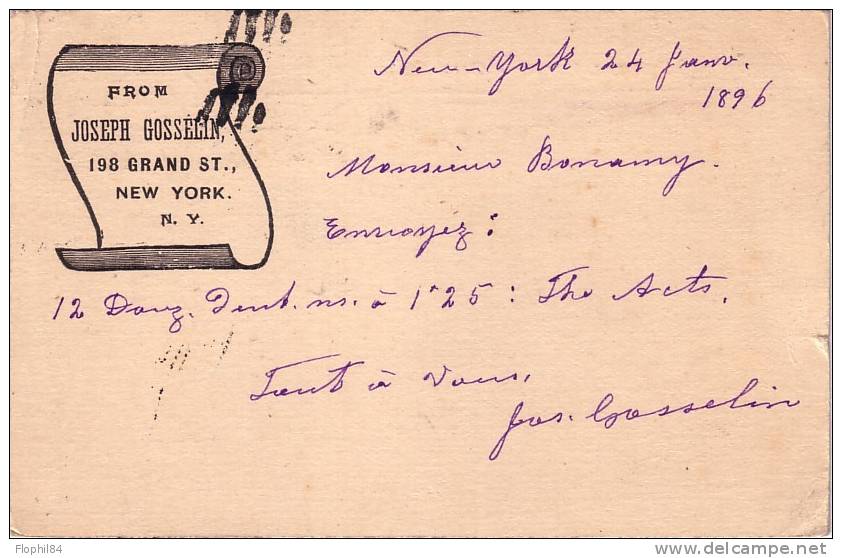 FROM
JOSEPH GOSSELIN,
198 GRAND ST.,
NEW YORK.
N. Y.
New-York 24 Janv.
1896
Monsieur Bonamy.
Envoyez :
12 Douz. Dent. ns. à 1.25 : The Acts.
Tout à Vous,
Jos. Gosselin
Flophil84
www.delcampe.net